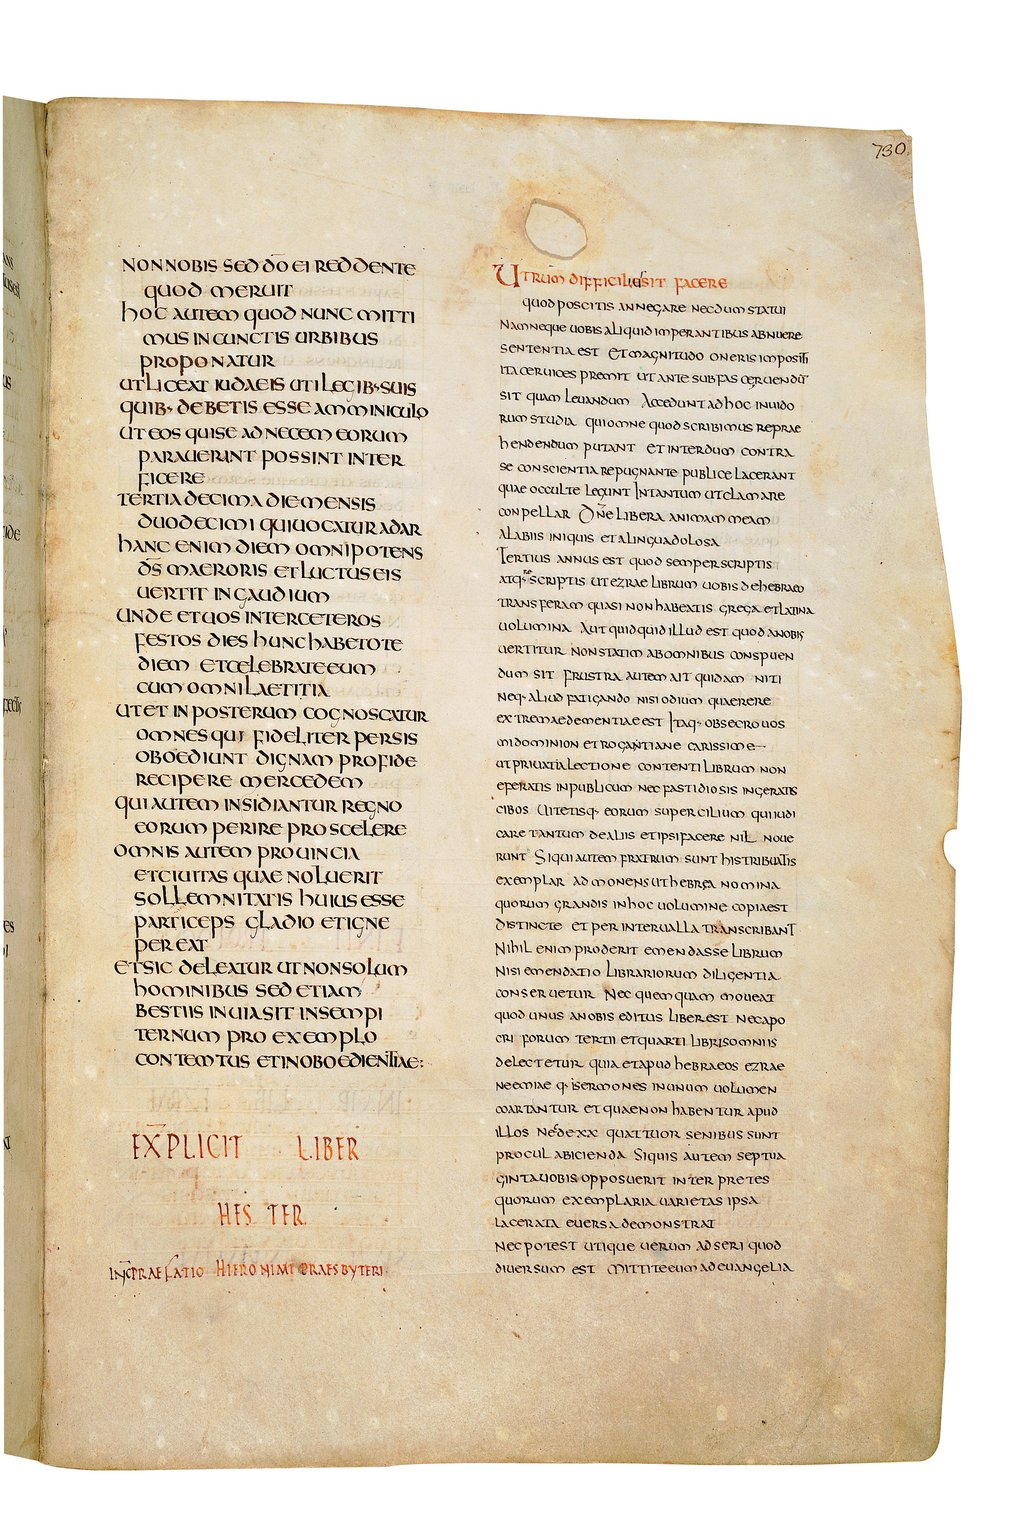 730
NON NOBIS SED DŌ EI REDDENTE
QUOD MERUIT
HOC AUTEM QUOD NUNC MITTI
MUS IN CUNCTIS URBIBUS
PROPONATUR
UT LICEAT IUDAEIS UTI LEGIB· SUIS
QUIB· DEBETIS ESSE AMMINICULO
UT EOS QUI SE AD NECEM EORUM
PARAUERINT POSSINT INTER
FICERE
TERTIA DECIMA DIE MENSIS
DUODECIMI QUI UOCATUR ADAR
HANC ENIM DIEM OMNIPOTENS
DS̄ MAERORIS ET LUCTUS EIS
UERTIT IN GAUDIUM
UNDE ET UOS INTER CETEROS
FESTOS DIES HUNC HABETOTE
DIEM ET CELEBRATE EUM
CUM OMNI LAETITIA
UT ET IN POSTERUM COGNOSCATUR
OMNES QUI FIDELITER PERSIS
OBOEDIUNT DIGNAM PRO FIDE
RECIPERE MERCEDEM
QUI AUTEM INSIDIANTUR REGNO
EORUM PERIRE PRO SCELERE
OMNIS AUTEM PROUINCIA
ET CIUITAS QUAE NOLUERIT
SOLLEMNITATIS HUIUS ESSE
PARTICEPS GLADIO ET IGNE
PEREAT
ET SIC DELEATUR UT NON SOLUM
HOMINIBUS SED ETIAM
BESTIIS INUIA SIT IN SEMPI
TERNUM PRO EXEMPLO
CONTEMTUS ET INOBOEDIENTIAE:
EXPLICIT LIBER
HESTER
INC̄ PRAEFATIO HIERONIMI PRAESBYTERI
UTRUM DIFFICILIUS SIT FACERE
QUOD POSCITIS AN NEGARE NECDUM STATUI
NAM NEQUE UOBIS ALIQUID IMPERANTIBUS ABNUERE
SENTENTIA EST ET MAGNITUDO ONERIS IMPOSITI
ITA CERUICES PREMIT UT ANTE SUB FASCE RUENDŪ
SIT QUAM LEUANDUM ACCEDUNT AD HOC INUIDO
RUM STUDIA QUI OMNE QUOD SCRIBIMUS REPRAE
HENDENDUM PUTANT ET INTERDUM CONTRA
SE CONSCIENTIA REPUGNANTE PUBLICE LACERANT
QUAE OCCULTE LEGUNT INTANTUM UT CLAMARE
CONPELLAR DN̄E LIBERA ANIMAM MEAM
A LABIIS INIQUIS ET A LINGUA DOLOSA
TERTIUS ANNUS EST QUOD SEMPER SCRIPTIS
ATQ· RESCRIPTIS UT EZRAE LIBRUM UOBIS DE HEBRAEO
TRANSFERAM QUASI NON HABEATIS GRECA ET LATINA
UOLUMINA AUT QUIDQUID ILLUD EST QUOD A NOBIS
UERTITUR NON STATIM AB OMNIBUS CONSPUEN
DUM SIT FRUSTRA AUTEM AIT QUIDAM NITI
NEQ· ALIUD FATIGANDO NISI ODIUM QUAERERE
EXTREMAE DEMENTIAE EST ITAQ· OBSECRO UOS
MI DOMINION ET ROGATIANE CARISSIME
UT PRIUATA LECTIONE CONTENTI LIBRUM NON
EFERATIS IN PUBLICUM NEC FASTIDIOSIS INGERATIS
CIBOS UITETISQ· EORUM SUPERCILIUM QUI IUDI
CARE TANTUM DE ALIIS ET IPSI FACERE NIL NOUE
RUNT SI QUI AUTEM FRATRUM SUNT HIS TRIBUATIS
EXEMPLAR ADMONENS UT HEBREA NOMINA
QUORUM GRANDIS IN HOC UOLUMINE COPIA EST
DISTINCTE ET PER INTERUALLA TRANSCRIBANT
NIHIL ENIM PRODERIT EMENDASSE LIBRUM
NISI EMENDATIO LIBRARIORUM DILIGENTIA
CONSERUETUR NEC QUEMQUAM MOUEAT
QUOD UNUS A NOBIS EDITUS LIBER EST NEC APO
CRIFORUM TERTII ET QUARTI LIBRI SOMNIIS
DELECTETUR QUIA ET APUD HEBRAEOS EZRAE
NEEMIAE Q· SERMONES IN UNUM UOLUMEN
COARTANTUR ET QUAE NON HABENTUR APUD
ILLOS NEC DE XX QUATTUOR SENIBUS SUNT
PROCUL ABICIENDA SI QUIS AUTEM SEPTUA
GINTA UOBIS OPPOSUERIT INTERPRETES
QUORUM EXEMPLARIA UARIETAS IPSA
LACERATA EUERSA DEMONSTRAT
NEC POTEST UTIQUE UERUM ADSERI QUOD
DIUERSUM EST MITTITE EUM AD EUANGELIA